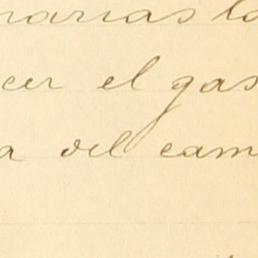 narias la
cer el gas
a del cam